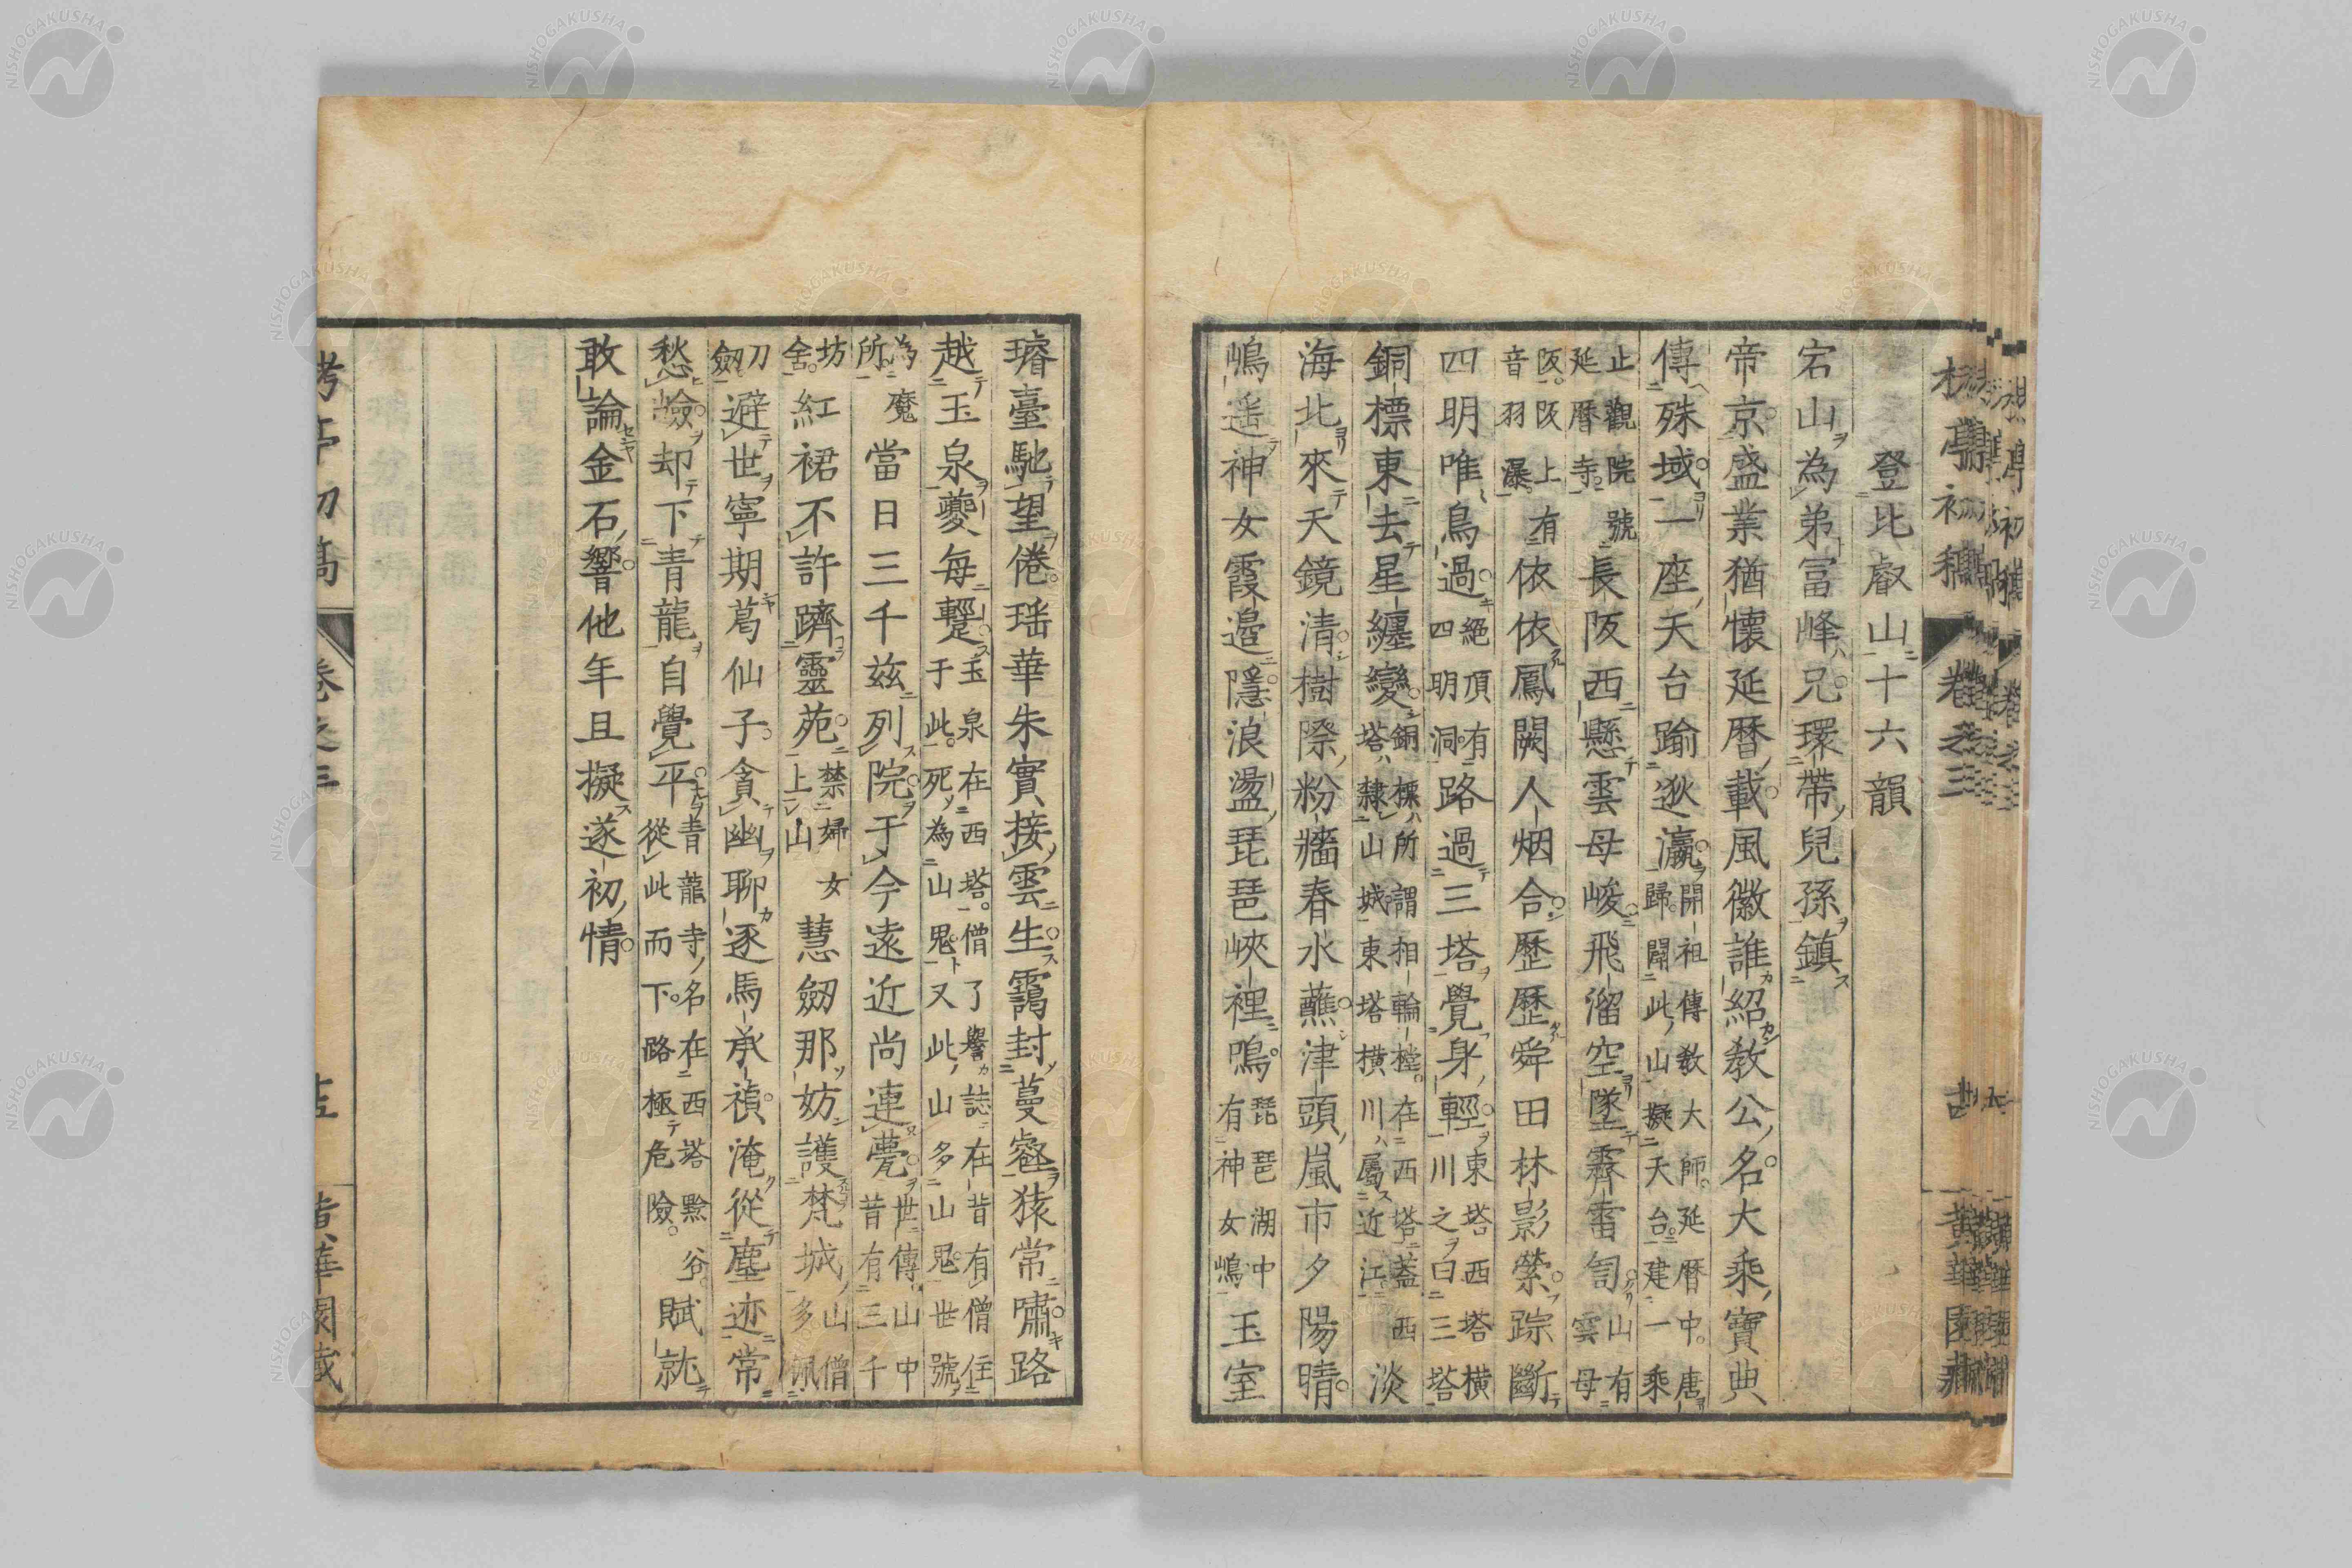 登比叡山十六韻
宕山為弟富峰兄環帶兒孫鎮
帝京盛業猶懷延曆載風徽誰紹教公名大乘寶典
傳殊域一座天台踰逖瀛開祖傳教大師延曆中唐歸開此山擬天台建一乘
止觀院號延曆寺長阪西懸雲母峻飛溜空墜霽雷訇山有雲母
阪阪上有音羽瀑依依鳳闕人烟合歷歷舜田林影縈踪斷
四明唯鳥過絕頂有四明洞路過三塔覺身輕東塔西塔橫川之曰三塔
銅標東去星纏變銅標所謂相輪橖在西塔蓋西塔隸山城東塔橫川屬近江淡
海北來天鏡清樹際粉牆春水蘸津頭嵐市夕陽晴
嶋遥神女霞邉隱浪盪琵琶峽裡鳴琵琶湖中有神女嶋玉室
璿臺馳望倦瑶華朱實接雲生靄封蔓壑猿常嘯路
越玉泉夔每躩玉泉在西塔僧了譽誌在昔有僧住于此死為山鬼又此山多山鬼世號
為魔所當日三千茲列院于今遠近尚連甍世傳山中昔有三千
坊舍紅裙不許躋靈苑禁婦女上山慧劒那妨護梵城山僧多佩
刀劒避世寧期葛仙子貪幽聊逐馬承禎淹從塵迹常
愁嶮却下青龍自覺平青龍寺名在西塔黙谷從此而下路極危險賦就
敢論金石響他年且擬遂初情
卷之三
NISHOGAKUSHA